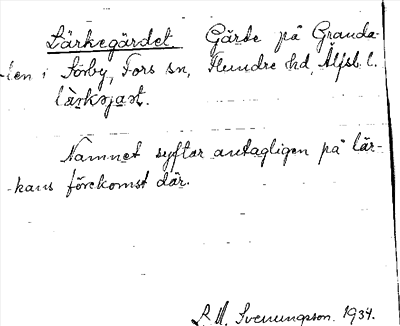 Lärkegärdet Gärde på Granda-
len i Sörby, Fors sn, Flundre hd, Äljsb. l.
Namnet syftar antagligen på lär-
kans förekomst där.
Svenungsson. 1934.